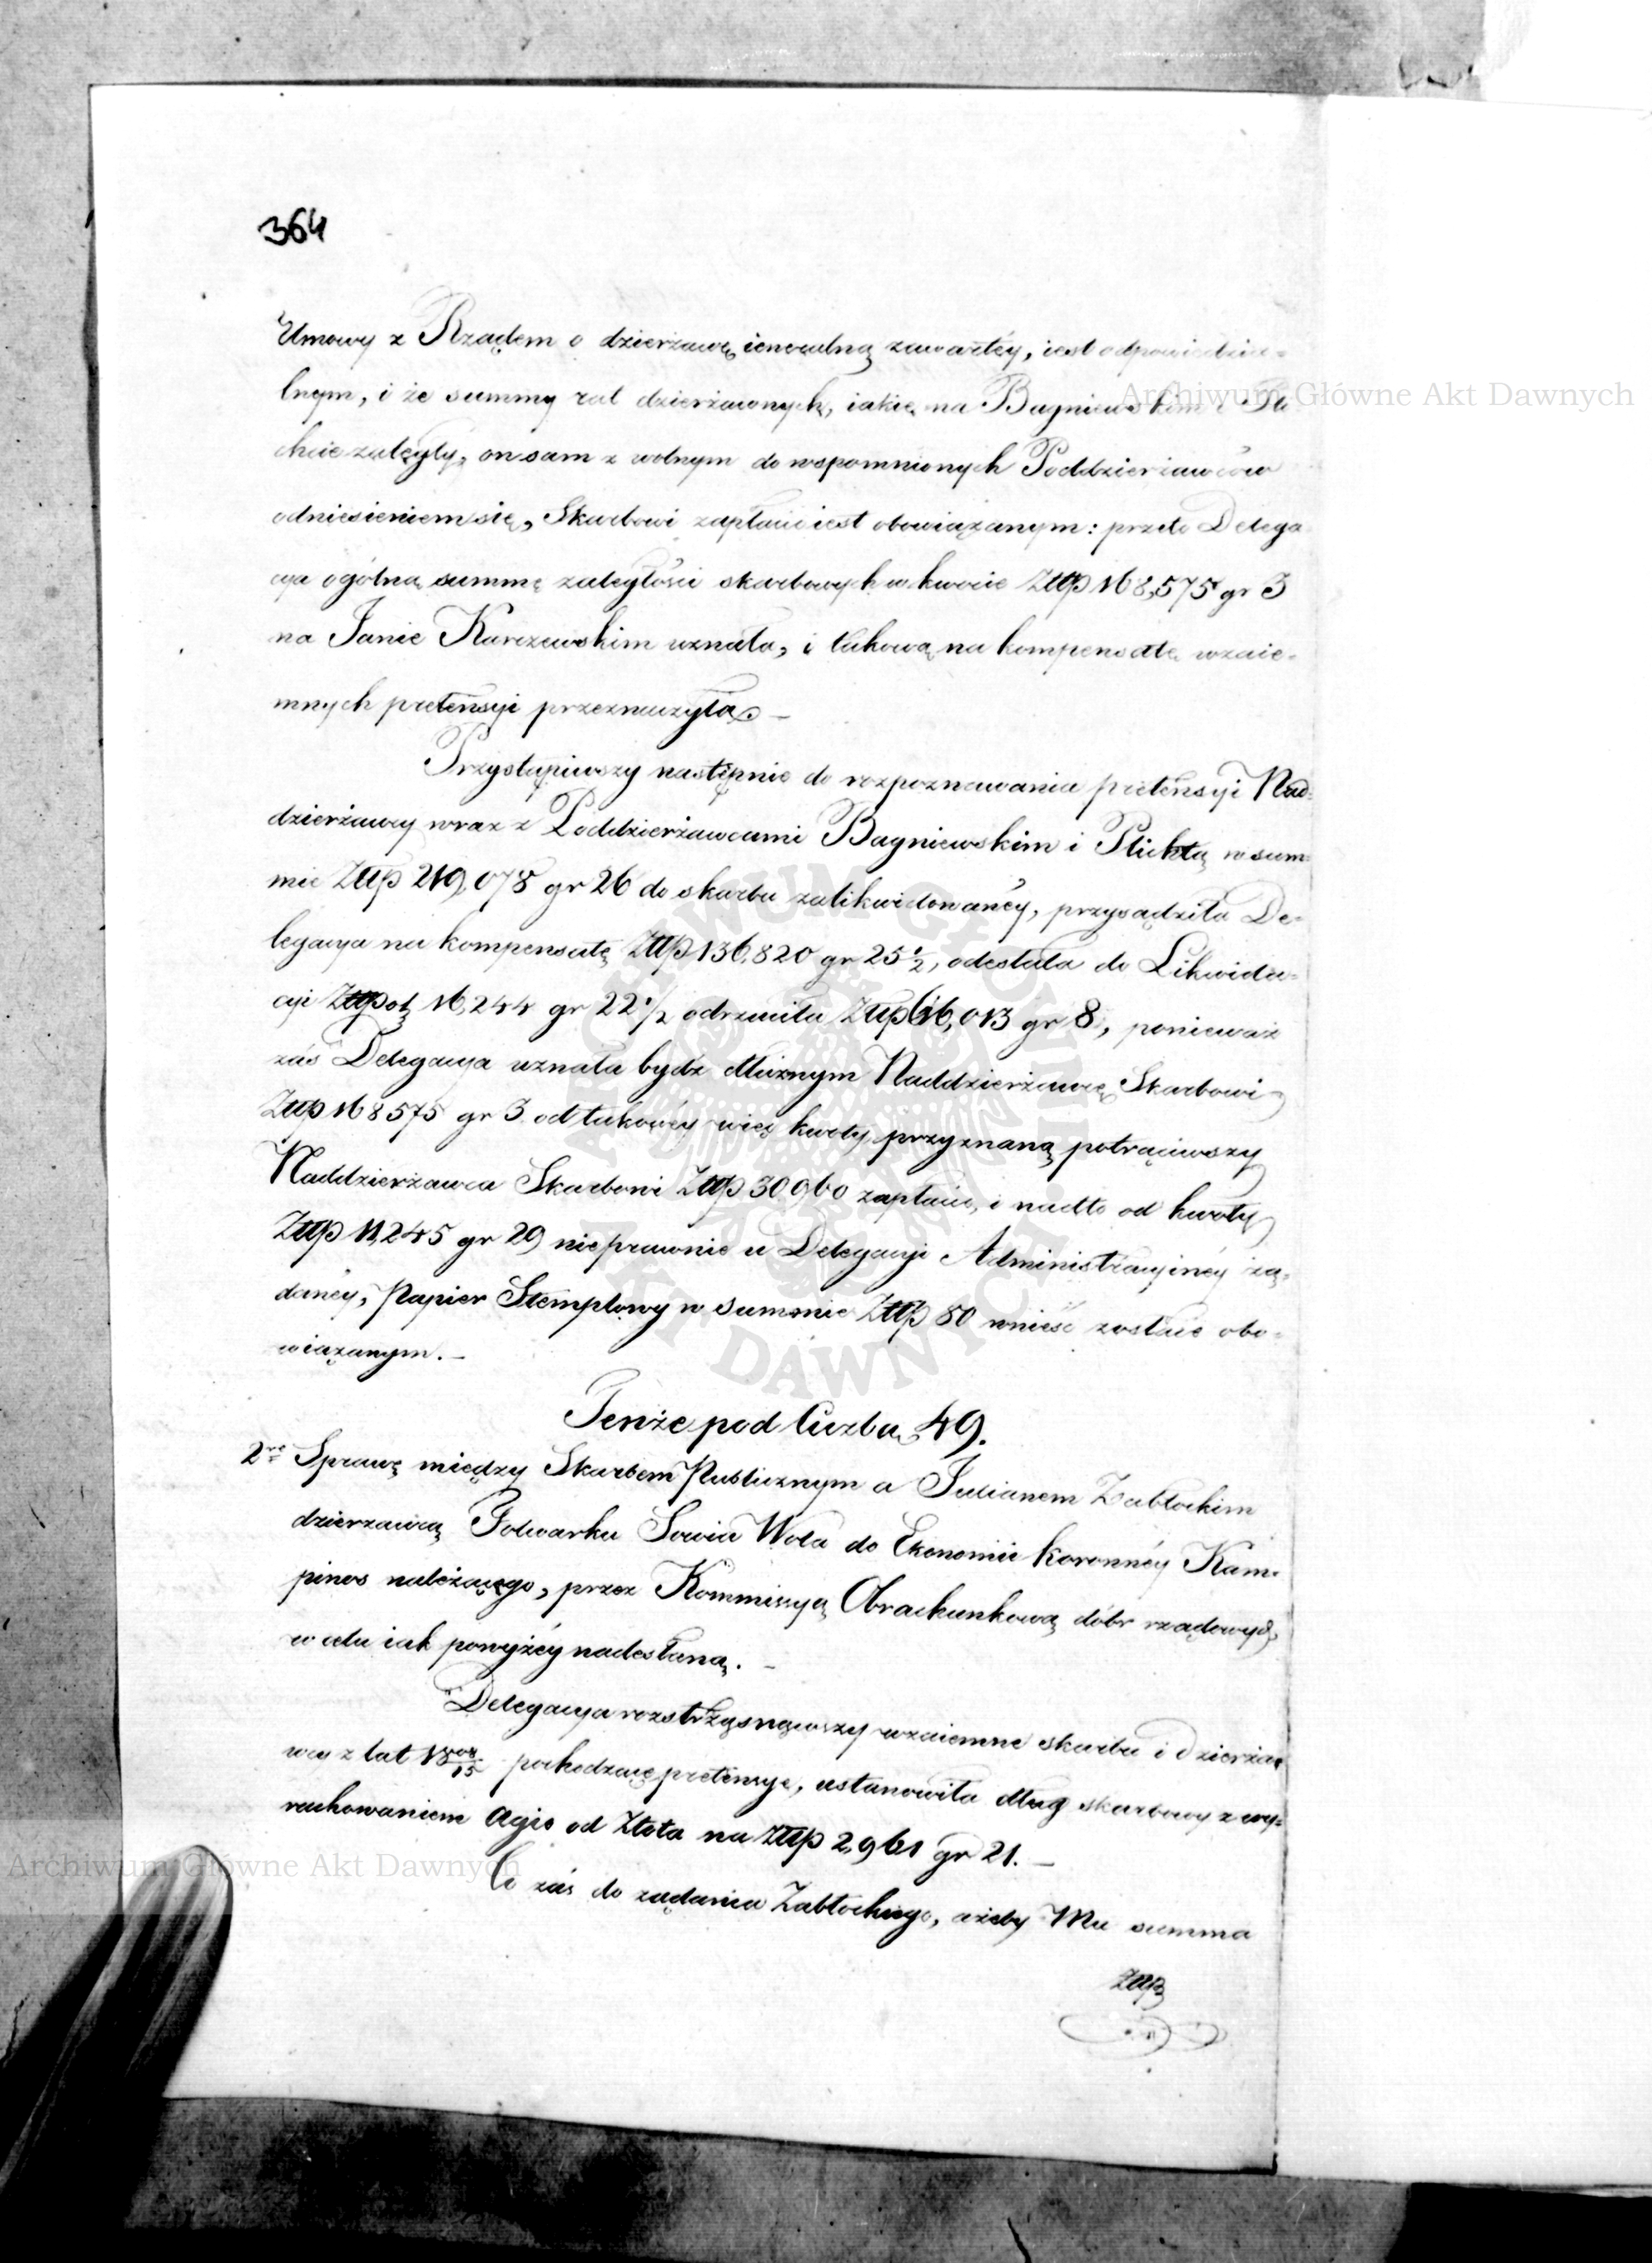 364
Umowy z Rządem o dzierżawę ieneralną zawartéy, iest odpowiedzia=
lnym, i że summy rat dzierżawnych, iakie na Bagniewskim i Pli
chcie zaległy, on sam z wolnym do wspomnionych Poddzierżawców
odniesieniem się, Skarbowi zapłacić iest obowiązanym: przeto Delega
cya ogólną summę zaległości skarbowych w kwocie Złłp 168,575 gr 3
na Janie Karczewskim uznała, i takową na kompensatę wzaie=
mnych pretensyi przeznaczyła. –
Przystąpiwszy następnie do rozpoznawania pretensyi Nad=
dzierżawcy wraz z Poddzierżawcami Bagniewskim i Plichtą w sum=
mie Złłp 219,078 gr 26 do skarbu zalikwidowanéy, przysądziła De=
legacya na kompensatę Złłp 136,820 gr 25 1/2, odesłała do Likwida=
cyi Złłpol 16,244 gr 22 1/2 odrzuciła Złłp 66,013 gr 8, ponieważ
zaś Delegacya uznała bydź dłużnym Naddzierżawcę Skarbowi
Złłp 168575 gr 3 od takowéy więc kwoty przyznaną potrąciwszy
Naddzierżawca Skarbowi Złłp 30960 zapłacić, i nadto od kwoty
Złłp 11,245 gr 29 nieprawnie u Delegacyi Administracyinéy żą=
danéy, Papier Stemplowy w summie Złłp 80 wnieść zostaie obo=
wiązanym. –
Tenże pod liczbą 49.
2re Sprawę między Skarbem Publicznym a Julianem Zabłockim
dzierzawcą Folwarku Sowia Wola do Ekonomii koronnéy Kam=
pinos należącego, przez Kommissyą Obrachunkową dóbr rządowych,
w celu iak powyżéy nadesłaną. –
Delegacya rozstrzygnąwszy wzaiemne skarbu i dzierża=
wcy z lat 1808/15 pochodzące pretensye, ustanowiła dług skarbowy z wy=
rachowaniem Agio od Złota na Złłp 2,961 gr 21. –
Co zaś do żądania Zabłockiego, ażeby Mu summa
Złłp
Archiwum Główne Akt Dawnych
Archiwum Główne Akt Dawnych
ARCHIWUM GŁÓWNE AKT DAWNYCH